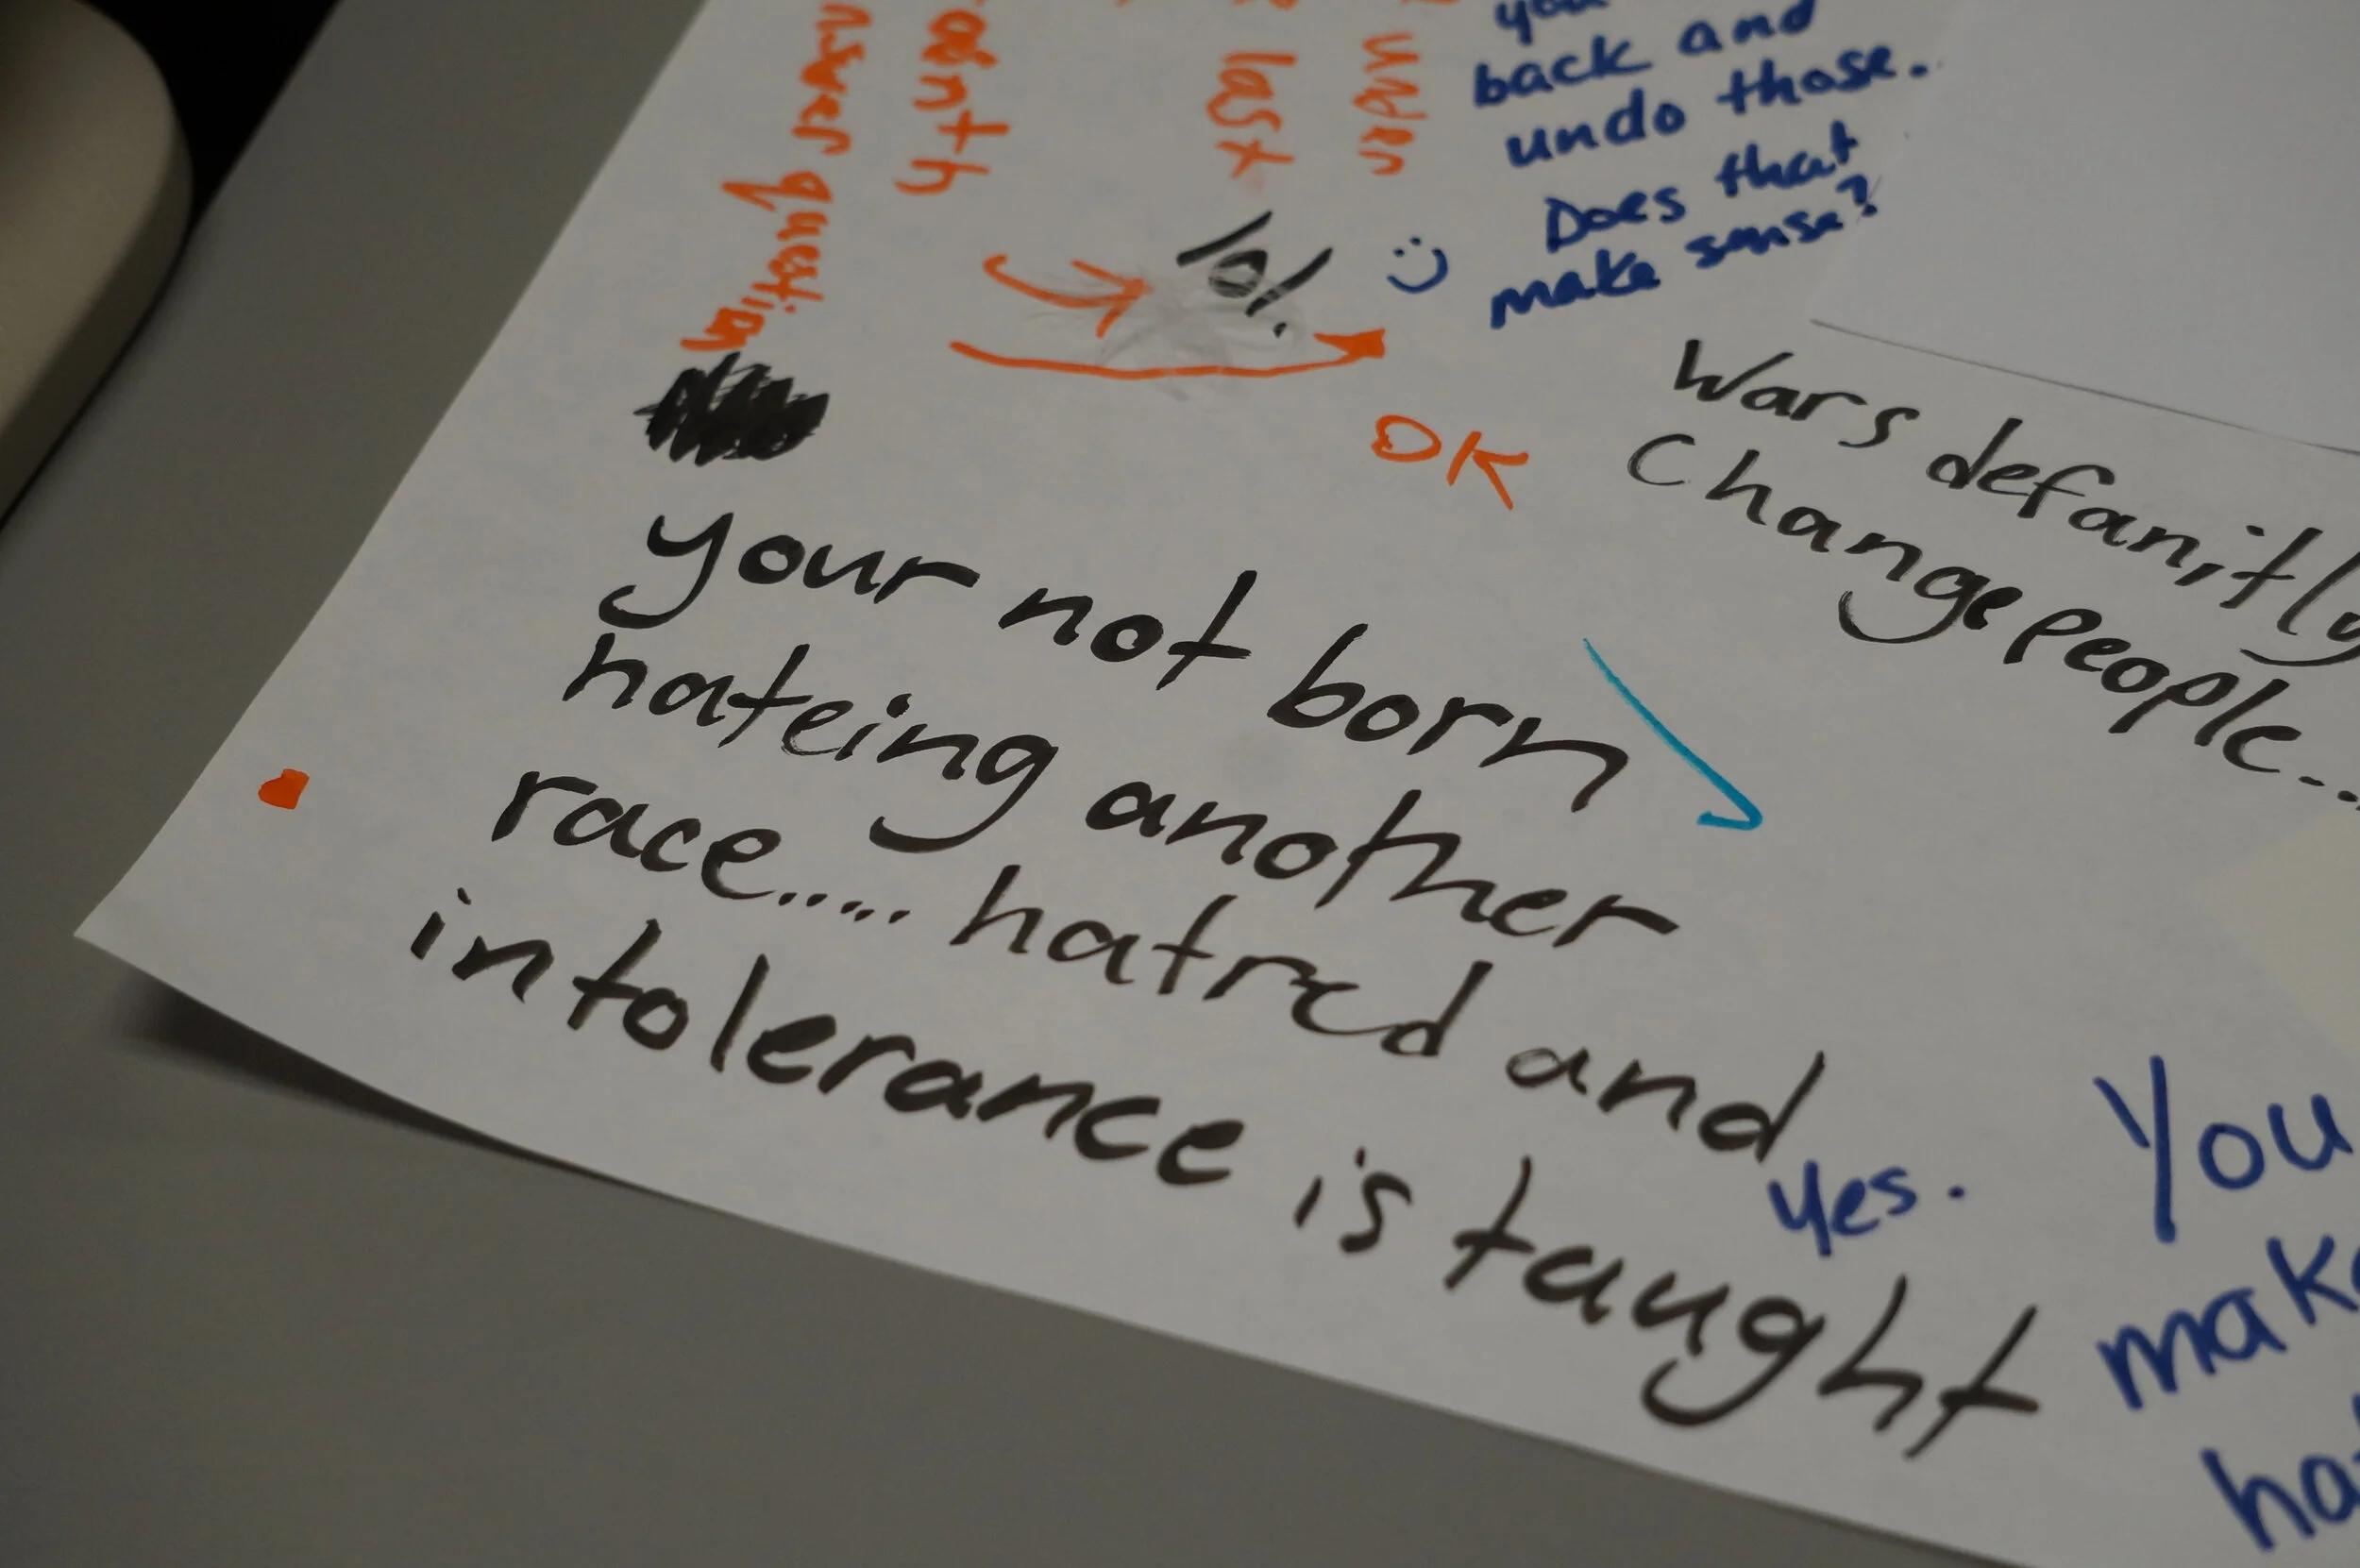 back and
undo those.
Does that
make sense?
last
question
lol.
OK
Wars defanitly
Change people...
your not born
hateing another
race..... hatred and
intolerance is taught
yes.
You